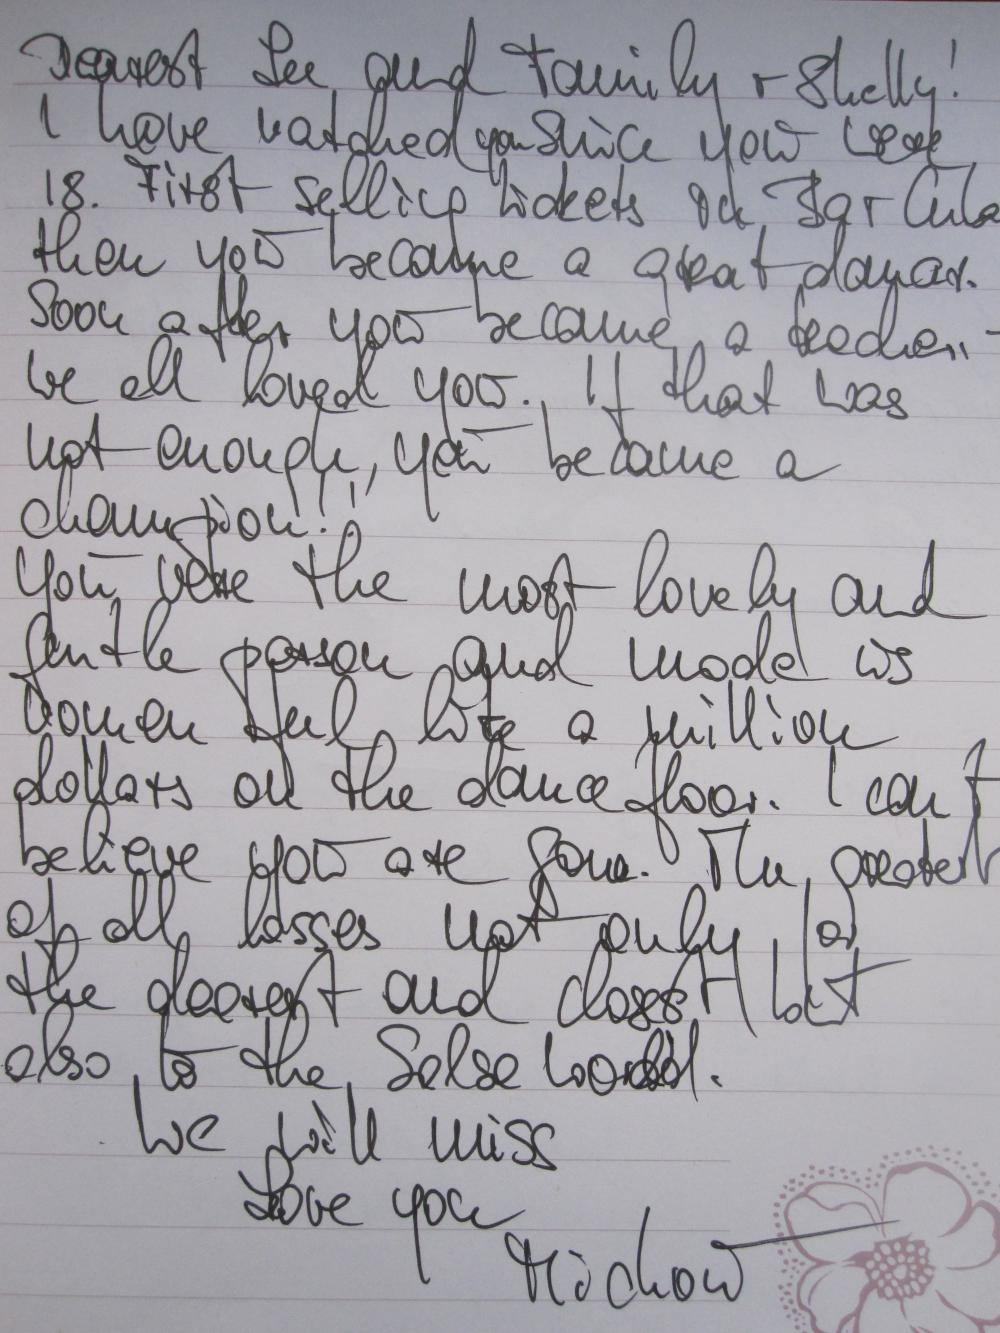 Dearest Lee and Family + Shelly!
I have watched you since you were
18. First selling tickets in Bar Cuba
then you became a great dancer.
Soon after you became a teacher..
we all loved you. If that was
not enough, you became a
champion!!
You were the most lovely and
gentle person and made us
women feel like a million
dollars on the dance floor. I can't
believe you are gone. The greatest
of all losses not only for
the dearest and closest but
also to the Salsa world.
We will miss
Love you